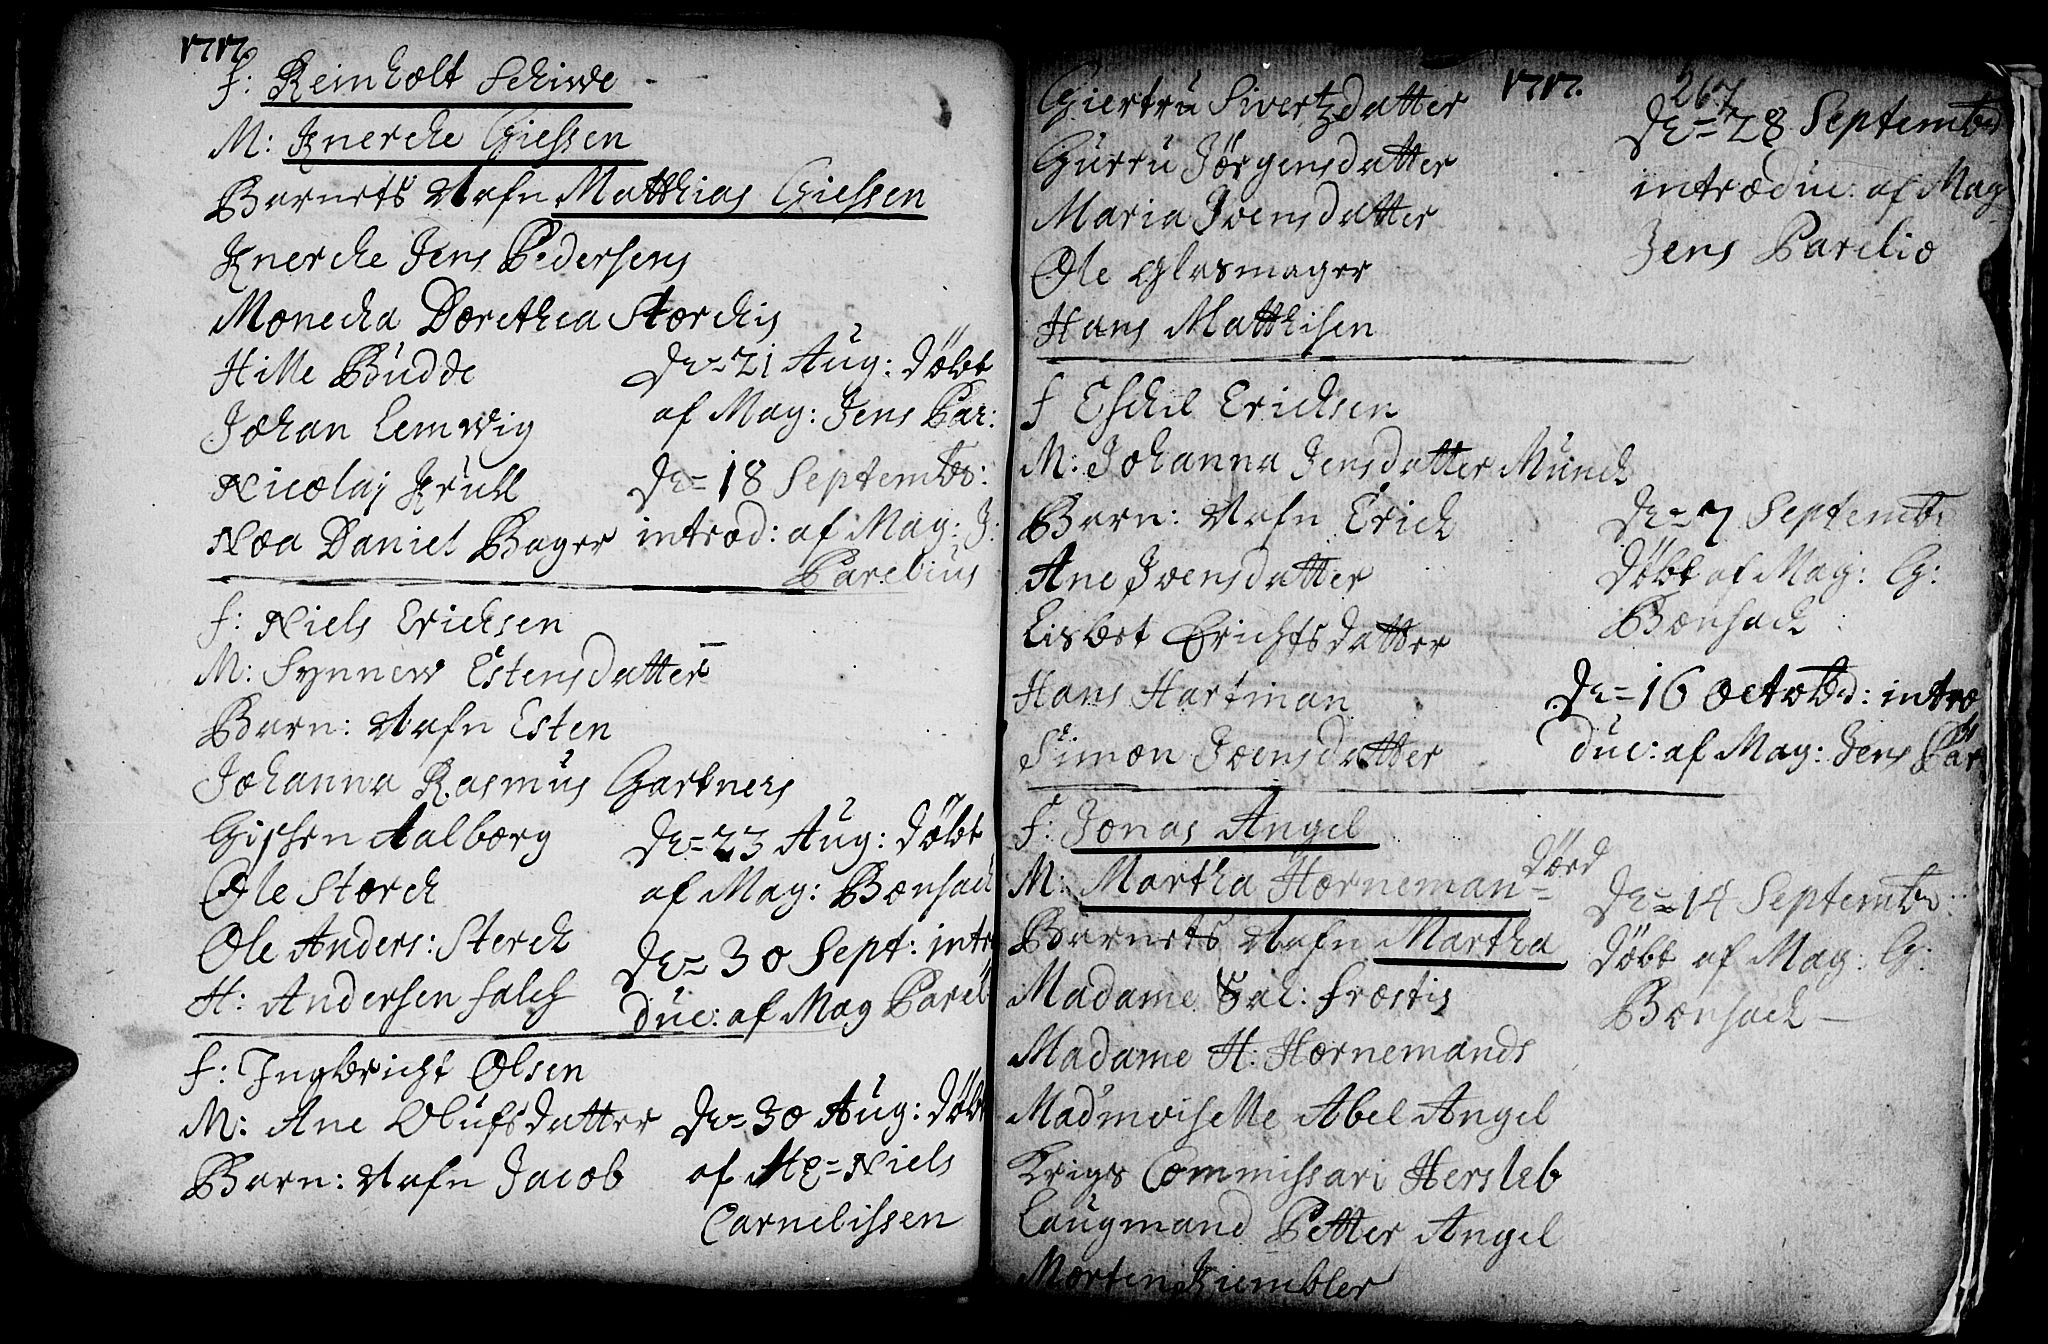 1717.
f: Reinholt Schive
M: Knerche Giessen
Barnets Nafn Matthias Giessen
Knerche Jens Pedersens
Monecha Dorethea Storchis
Hille Budde
Johan Lemvig
Nicolaj Krull
Noa Daniel Bager
De= 21 Aug: døbt
af Mag: Jens Par:
De= 18 Septembr:
introd: af Mag: J:
Parelius
f: Niels Erichsen
M: Synnew Estensdatter
Barn: Nafn Esten
Johanna Rasmus Gartners
Gissen Aalborg
Ole Storch
Ole Anders: Sterch
H: Andersen Falch
De= 23 Aug: døbt
af Mag: Bonsach
De= 30 Sept: intro
duc: af Mag Parel
f: Ingbricht Olsen
M: Ane Olufsdatter
Barn: Nafn Jacob
De= 30 Aug: døbt
af Hr= Niels
Cornelissen
1717.
267
Giertru Sivertzdatter
Gurru Jørgensdatter
Maria Joensdatter
Ole Glasmager
Hans Matthisen
De= 28 Septembr
introduc: af Mag
Jens Parelio
f Eschil Erichsen
M: Johanna Jensdatter Munch
Barn: Nafn Erich
Ane Joensdatter
Lisbet Erichsdatter
Hans Hartman
Simon Joensdatter
De= 7 Septembr
døbt af Mag: G:
Bonsach:
De= 16 Octobr: intro
duc: af Mag: Jens Par
f: Jonas Angel
M: Martha Horneman= død
Barnets Nafn Martha
Madame Sal: Frostis
Madame H: Hornemands
Mad'moiselle Abel Angel
Krigs Commissari Hersleb
Laugmand Petter Angel
Morten Kiembler
De= 14 Septembr:
døbt af Mag: G:
Bonsach